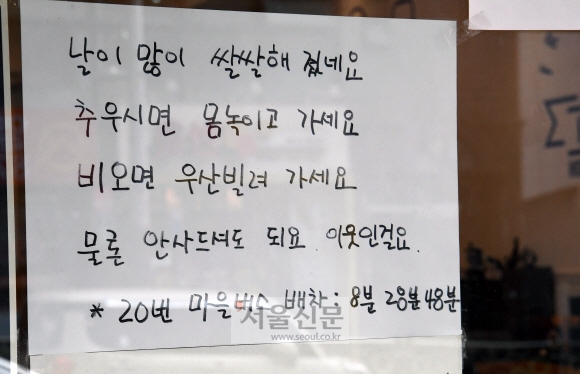 날이 많이 쌀쌀해 졌네요
추우시면 몸녹이고 가세요
비오면 우산빌려 가세요
물론 안사드셔도 되요 이웃인걸요.
* 20번 마을버스 배차 : 8분 28분 48분
서울신문
www.seoul.co.kr